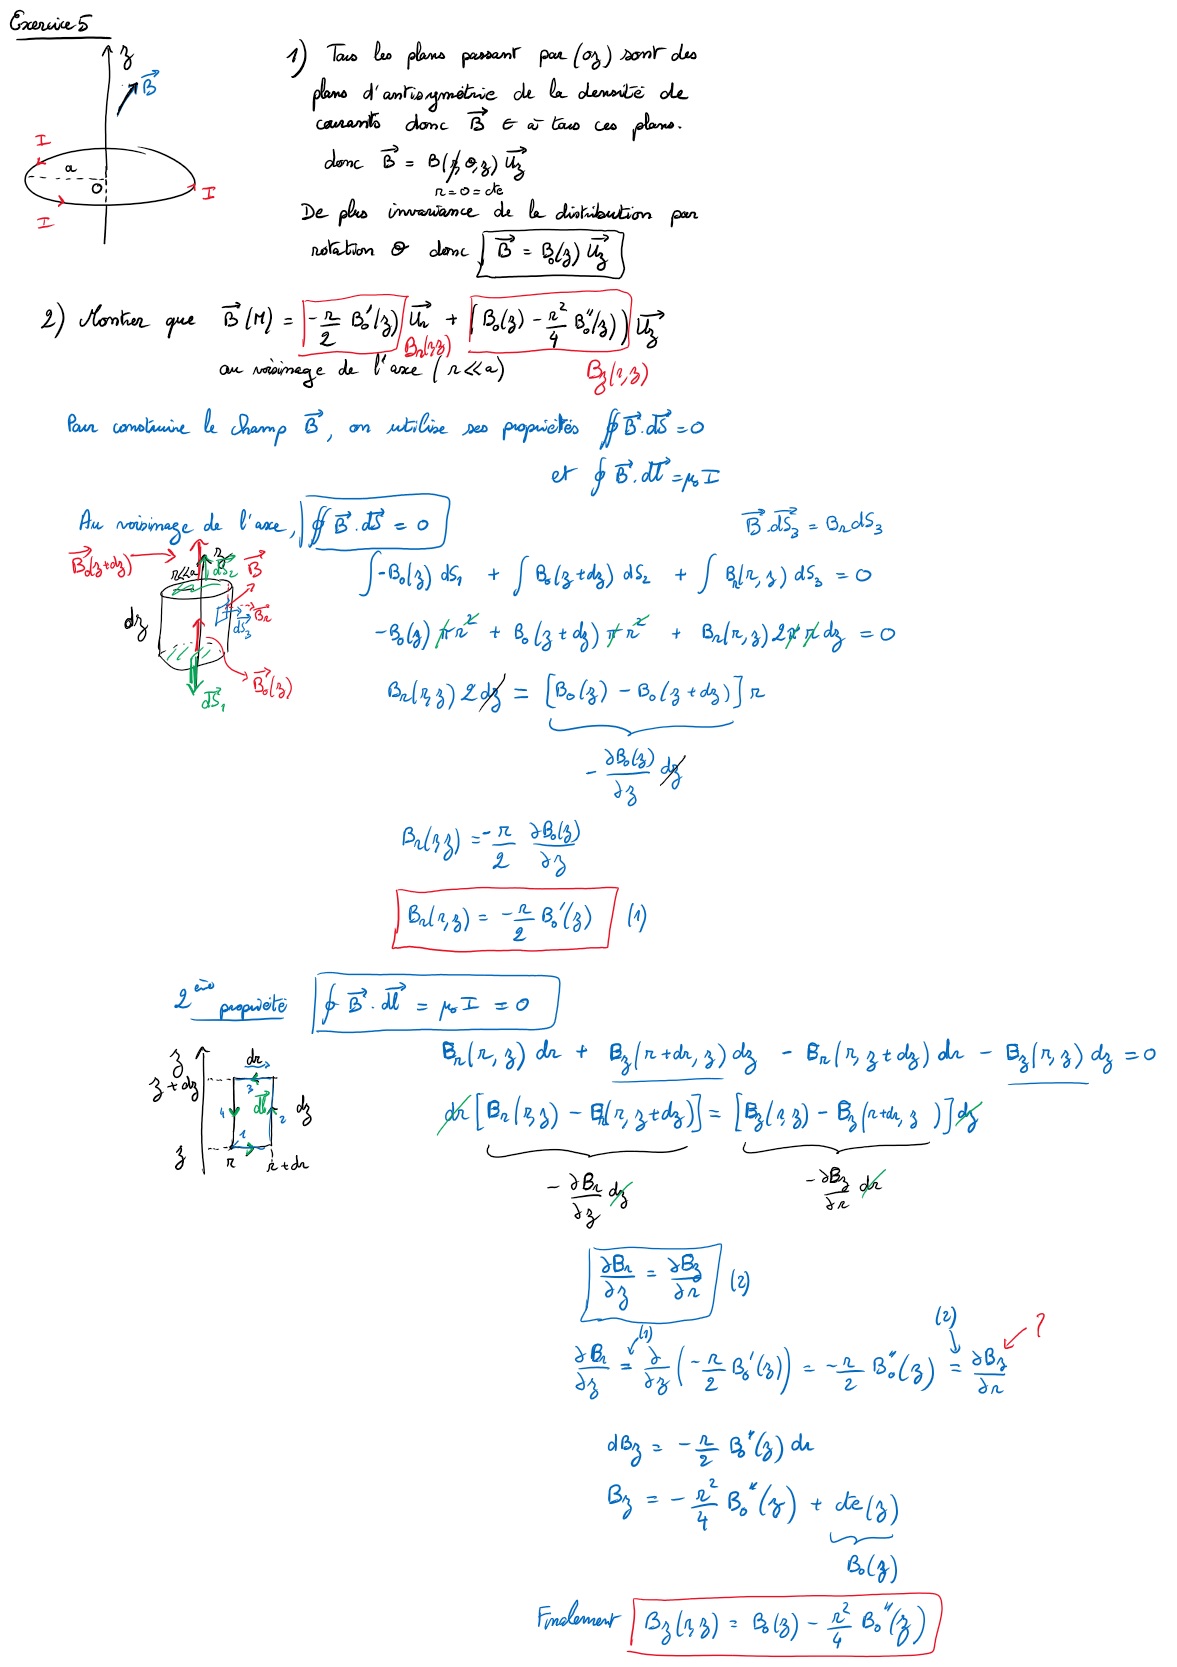 Exercice 5
z
B⃗
I
a
O
I
I
1) Tous les plans passant par (oz) sont des
plans d'antisymétrie de la densité de
courants donc B⃗ ∈ à tous ces plans.
donc B⃗ = B(r, θ, z) U⃗z
r = 0 = cte
De plus invariance de la distribution par
rotation θ donc B⃗ = B₀(z) U⃗z
2) Montrer que B⃗(M) = -r/2 B₀'(z) U⃗r + (B₀(z) - r²/4 B₀''(z)) U⃗z
Br(r,z)
au voisinage de l'axe (r << a)
Bz(r,z)
Pour construire le champ B⃗, on utilise ses propriétés ∯ B⃗.dS⃗ = 0
et ∮ B⃗.dl⃗ = μ₀ I
Au voisinage de l'axe, ∯ B⃗.dS⃗ = 0
B⃗.dS⃗₃ = Br dS₃
B⃗₀(z+dz)
r<<a
z
dS⃗₂
B⃗
dz
B⃗r
dS⃗₃
B⃗₀(z)
dS⃗₁
∫ -B₀(z) dS₁ + ∫ B₀(z+dz) dS₂ + ∫ Br(r, z) dS₃ = 0
-B₀(z) π r² + B₀(z+dz) π r² + Br(r, z) 2 π r dz = 0
Br(r,z) 2 dz = [B₀(z) - B₀(z+dz)] r
- ∂B₀(z)/∂z dz
Br(r,z) = - r/2 ∂B₀(z)/∂z
Br(r,z) = - r/2 B₀'(z) (1)
2ème propriété ∮ B⃗.dl⃗ = μ₀ I = 0
z
z + dz
z
dr
3
4
dl⃗
2
dz
1
r
r + dr
Br(r, z) dr + Bz(r+dr, z) dz - Br(r, z+dz) dr - Bz(r, z) dz = 0
dr [Br(r,z) - Br(r, z+dz)] = [Bz(r,z) - Bz(r+dr, z)] dz
- ∂Br/∂z dz
- ∂Bz/∂r dr
∂Br/∂z = ∂Bz/∂r (2)
(1)
(2)
?
∂Br/∂z = ∂/∂z (- r/2 B₀'(z)) = - r/2 B₀''(z) = ∂Bz/∂r
dBz = - r/2 B₀''(z) dr
Bz = - r²/4 B₀''(z) + cte(z)
B₀(z)
Finalement Bz(r,z) = B₀(z) - r²/4 B₀''(z)